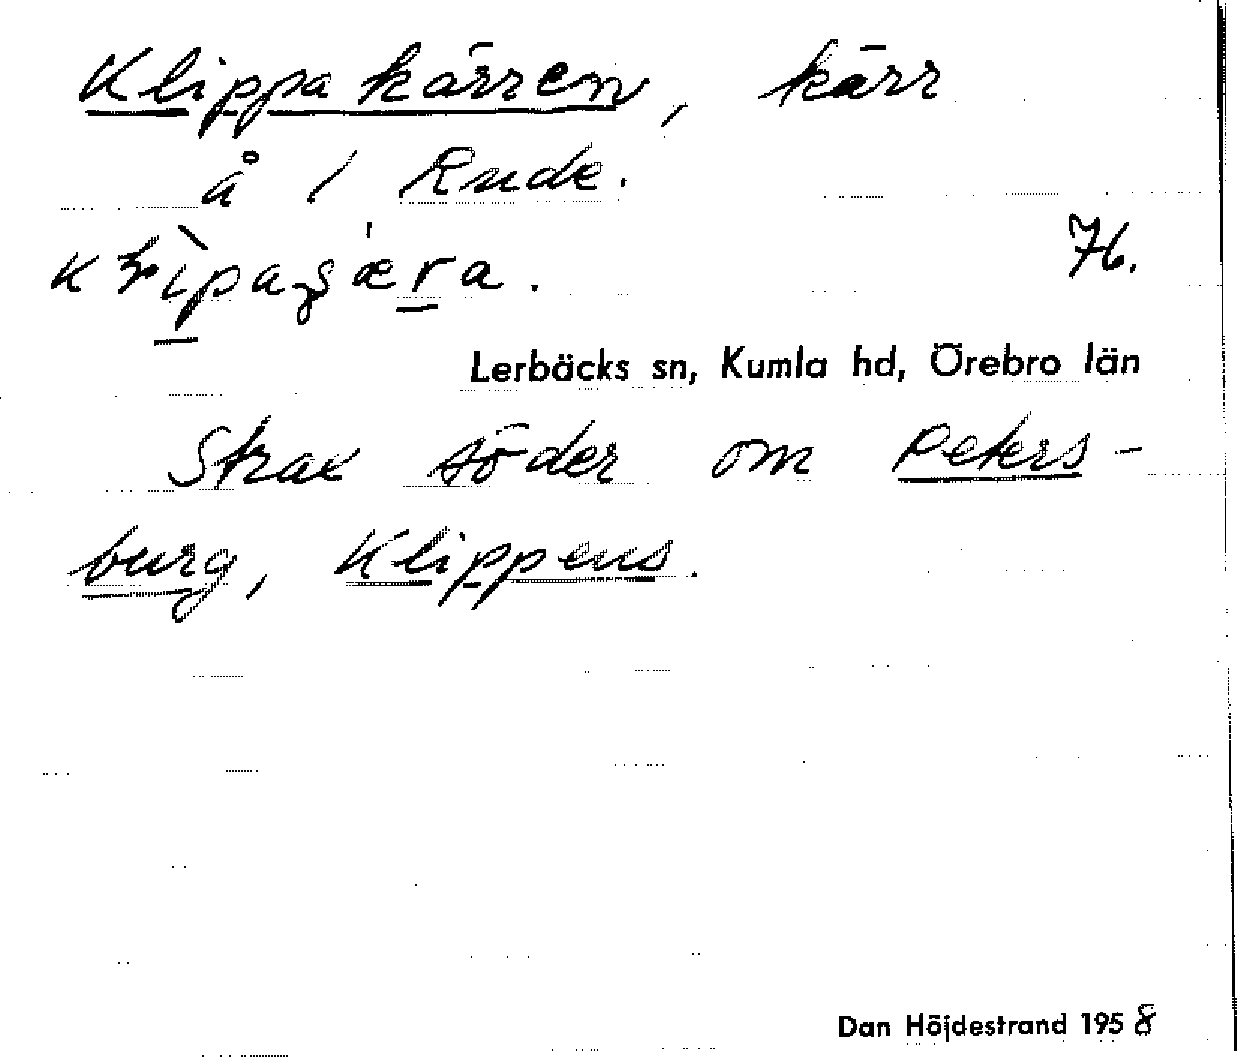 Klippakärren, kärr
å 1 Rude.
76.
Lerbäcks sn, Kumla hd, Örebro län
Strax söder om Peters-
burg, Klippens.
Dan Höjdestrand 1958